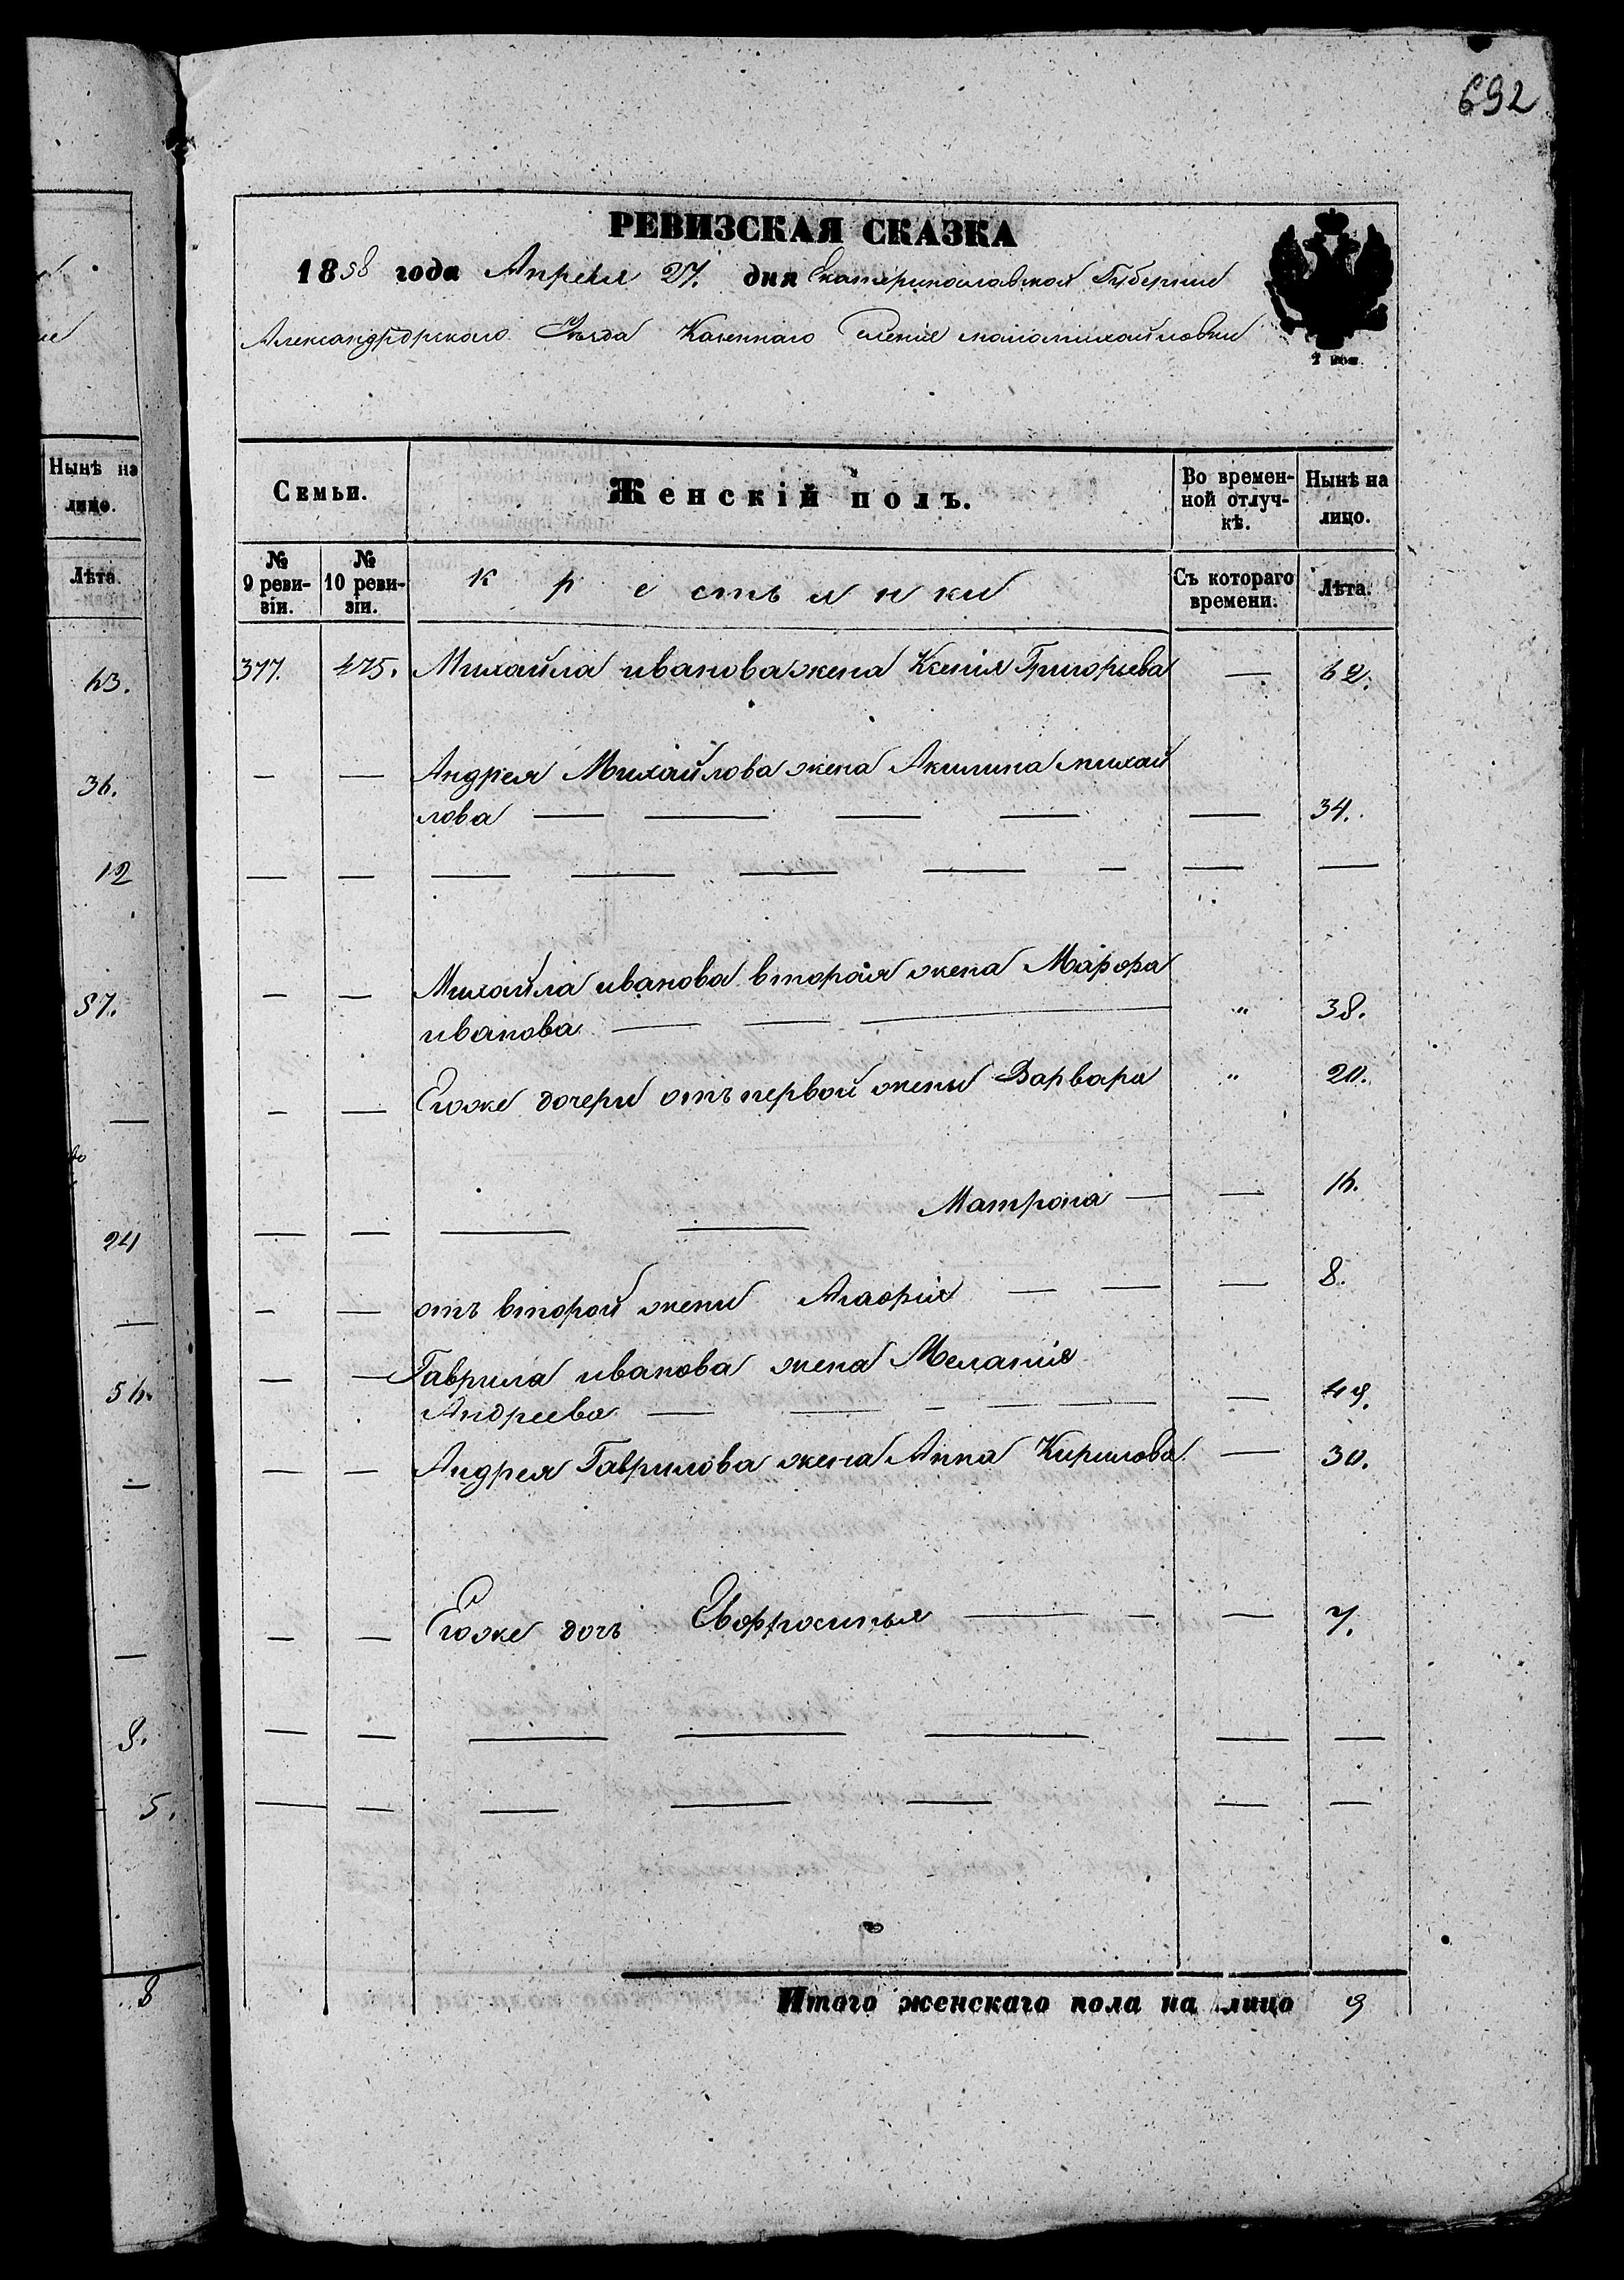 692
РЕВИЗСКАЯ СКАЗКА
1858 года Апреля 27. дня Екатеринославской Губернии
Александровского Уѣзда Казеннаго Селенія маломихайловки
Нынѣ на лицо.
Лѣта.
43.
36.
12
57.
24
56.
9.
5.
8
Семьи.
Женскій полъ.
Во времен-
ной отлуч-
кѣ.
Нынѣ на
лицо.
№
9 реви-
зіи.
№
10 реви-
зіи.
крестьянки
Съ котораго
времени.
Лѣта.
377. 475. Михайла иванова жена Ксенія Григорьева — 62.
— — Андрея Михайлова жена Акилина михай
лова — — — — — 34.
— — — — — — — — —
— — Михайла иванова вторая жена Марфа
иванова — — — " 38.
— — Егоже дочери отъ первой жены Варвара " 20.
— — — — Матрона — — 16.
— — отъ второй жены Агафія — — — 8.
— — Гаврила иванова жена Меланія
Андреева — — — — — — 49.
— — Андрея Гаврилова жена Анна Кирилова — 30.
— — Егоже дочь Евфросинья — — — 7.
— — — — — — —
— — — — — — —
Итого женскаго пола на лицо 9